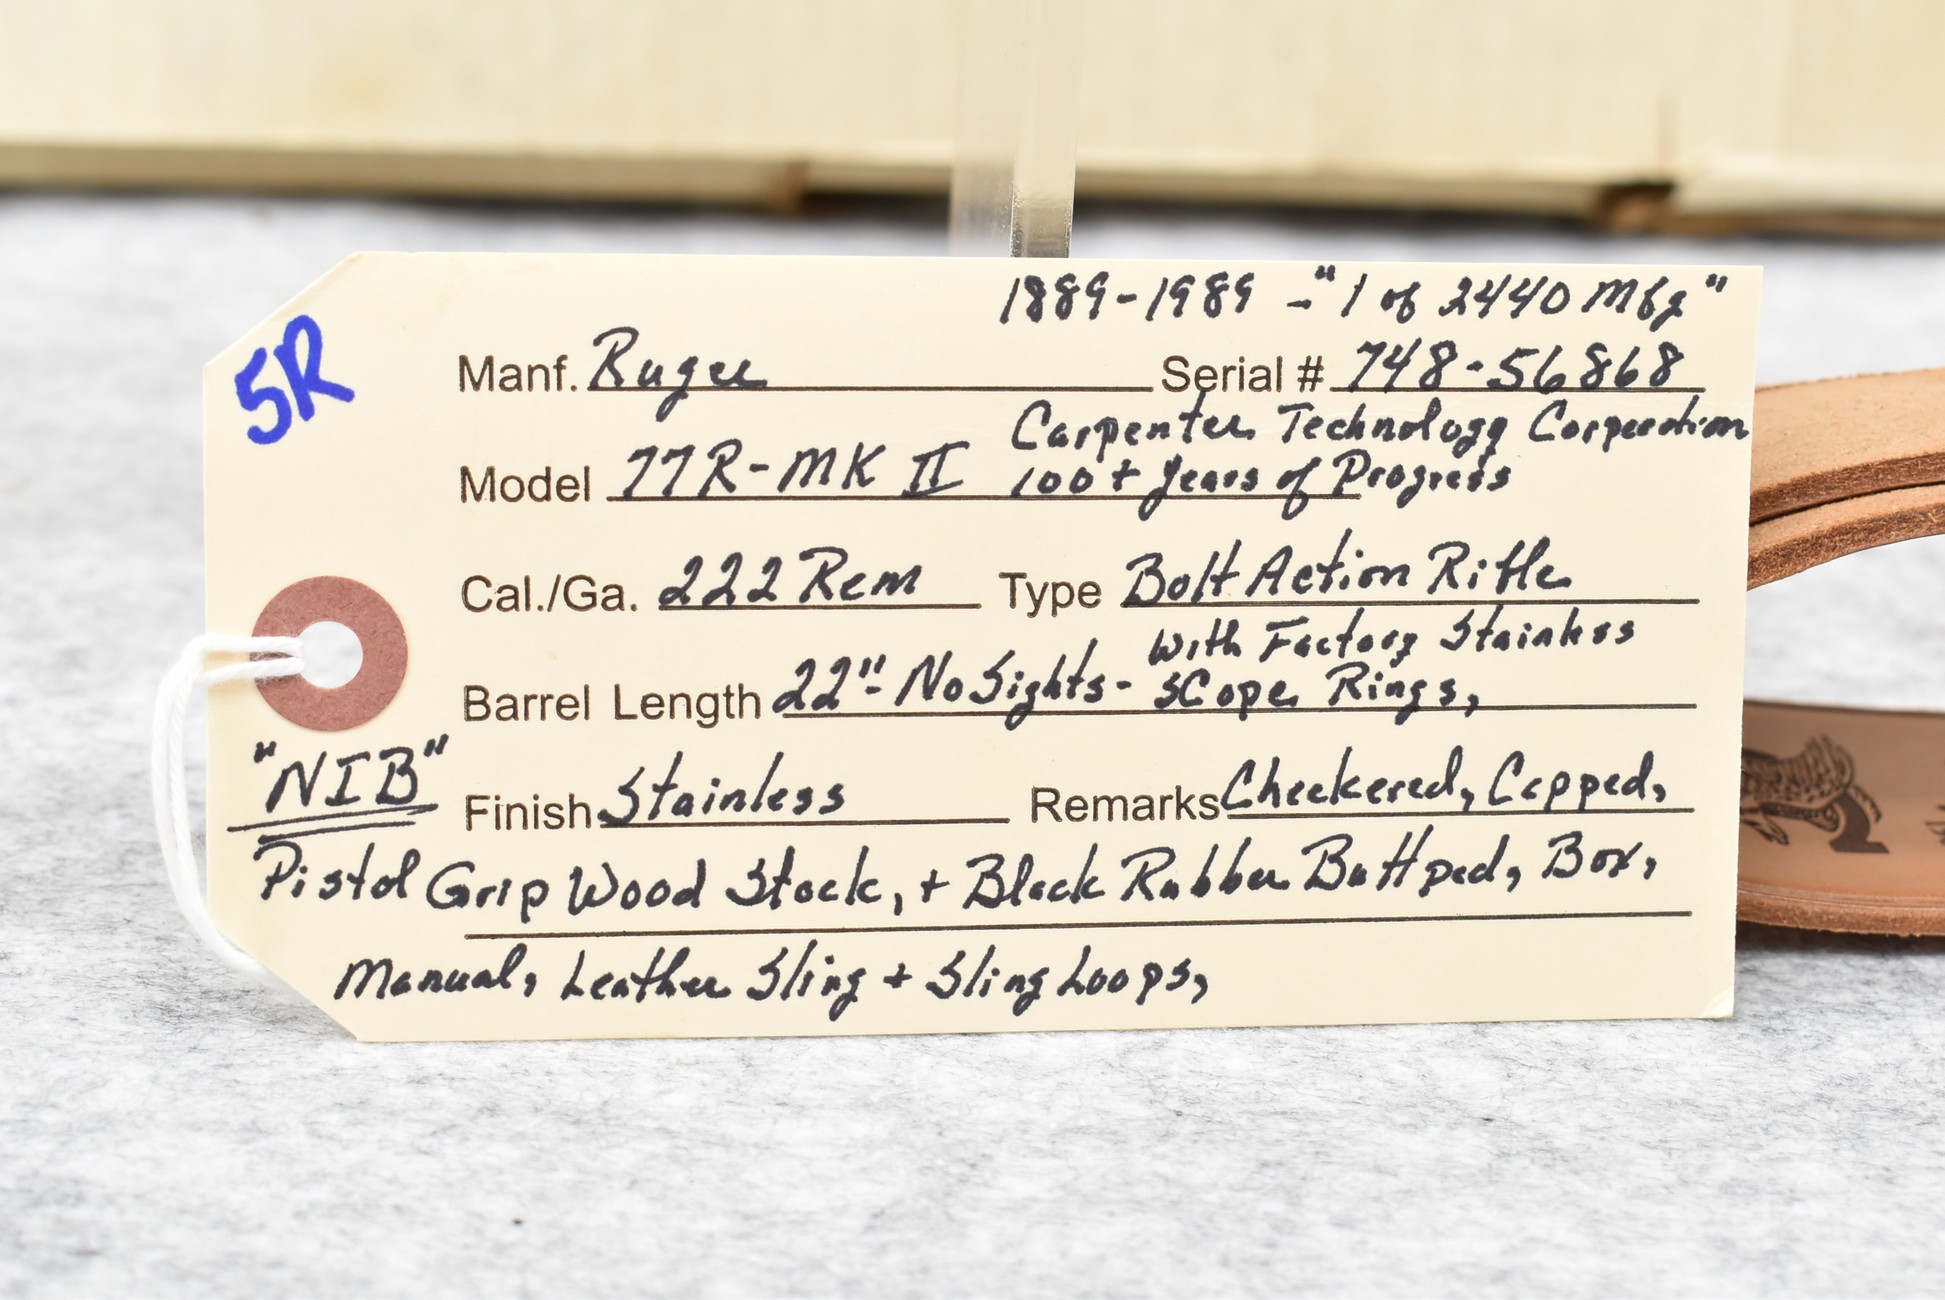 1889-1989 - "1 of 2440 Mfg"
5R
Manf. Ruger Serial # 748-56868
Carpenter Technology Corporation
Model 77R-MK II 100 + Years of Progress
Cal./Ga. 222 Rem Type Bolt Action Rifle
With Factory Stainless
Barrel Length 22"- No Sights- Scope Rings,
"NIB"
Finish Stainless Remarks Checkered, Capped,
Pistol Grip Wood Stock, + Black Rubber Buttpad, Box,
Manual, Leather Sling + Sling Loops,